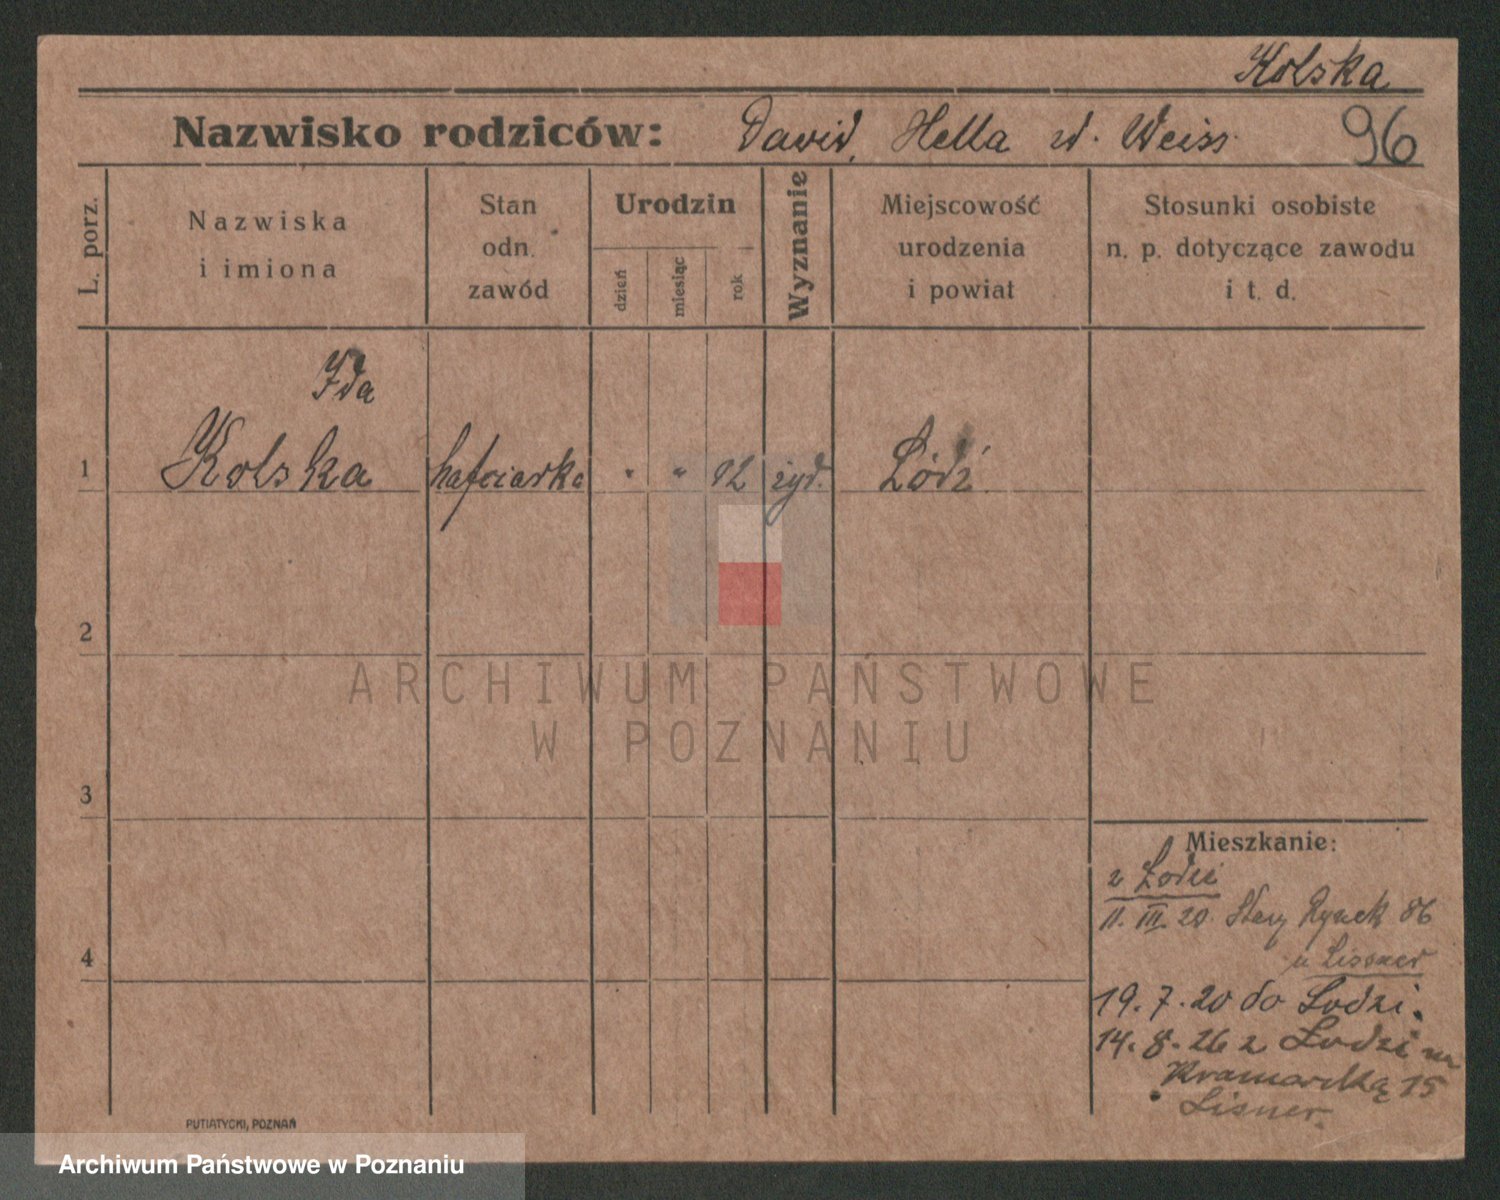 Kolska
Nazwisko rodziców: Dawid, Hella z d. Weiss. 96
L. porz.
Nazwiska
i imiona
Stan
odn.
zawód
Urodzin
dzień
miesiąc
rok
Wyznanie
Miejscowość
urodzenia
i powiat
Stosunki osobiste
n. p. dotyczące zawodu
i t. d.
Ida
1 Kolska hafciarka " " 12 żyd. Łódź
2
ARCHIWUM PAŃSTWOWE
W POZNANIU
3
Mieszkanie:
z Łodzi
11. III. 20. Stary Rynek 86
u Lissner
4
19. 7. 20 do Lodzi.
14. 8. 26 z Łodzi na
Kramarską 15
Lisner.
PUTIATYCKI, POZNAŃ
Archiwum Państwowe w Poznaniu